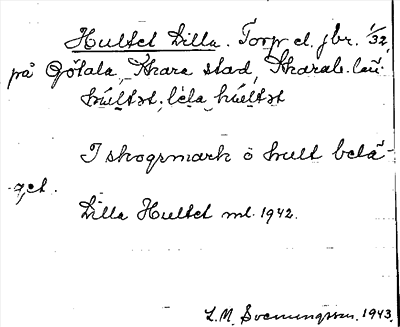 Hultet Lilla. Torp el. jbr. 1/32,
på Götala, Skara stad, Skarab. län.
húltət; lela húltət
I skogsmark o hult belä-
get.
Lilla Hultet ml. 1942.
L. M. Svenungsson. 1943.